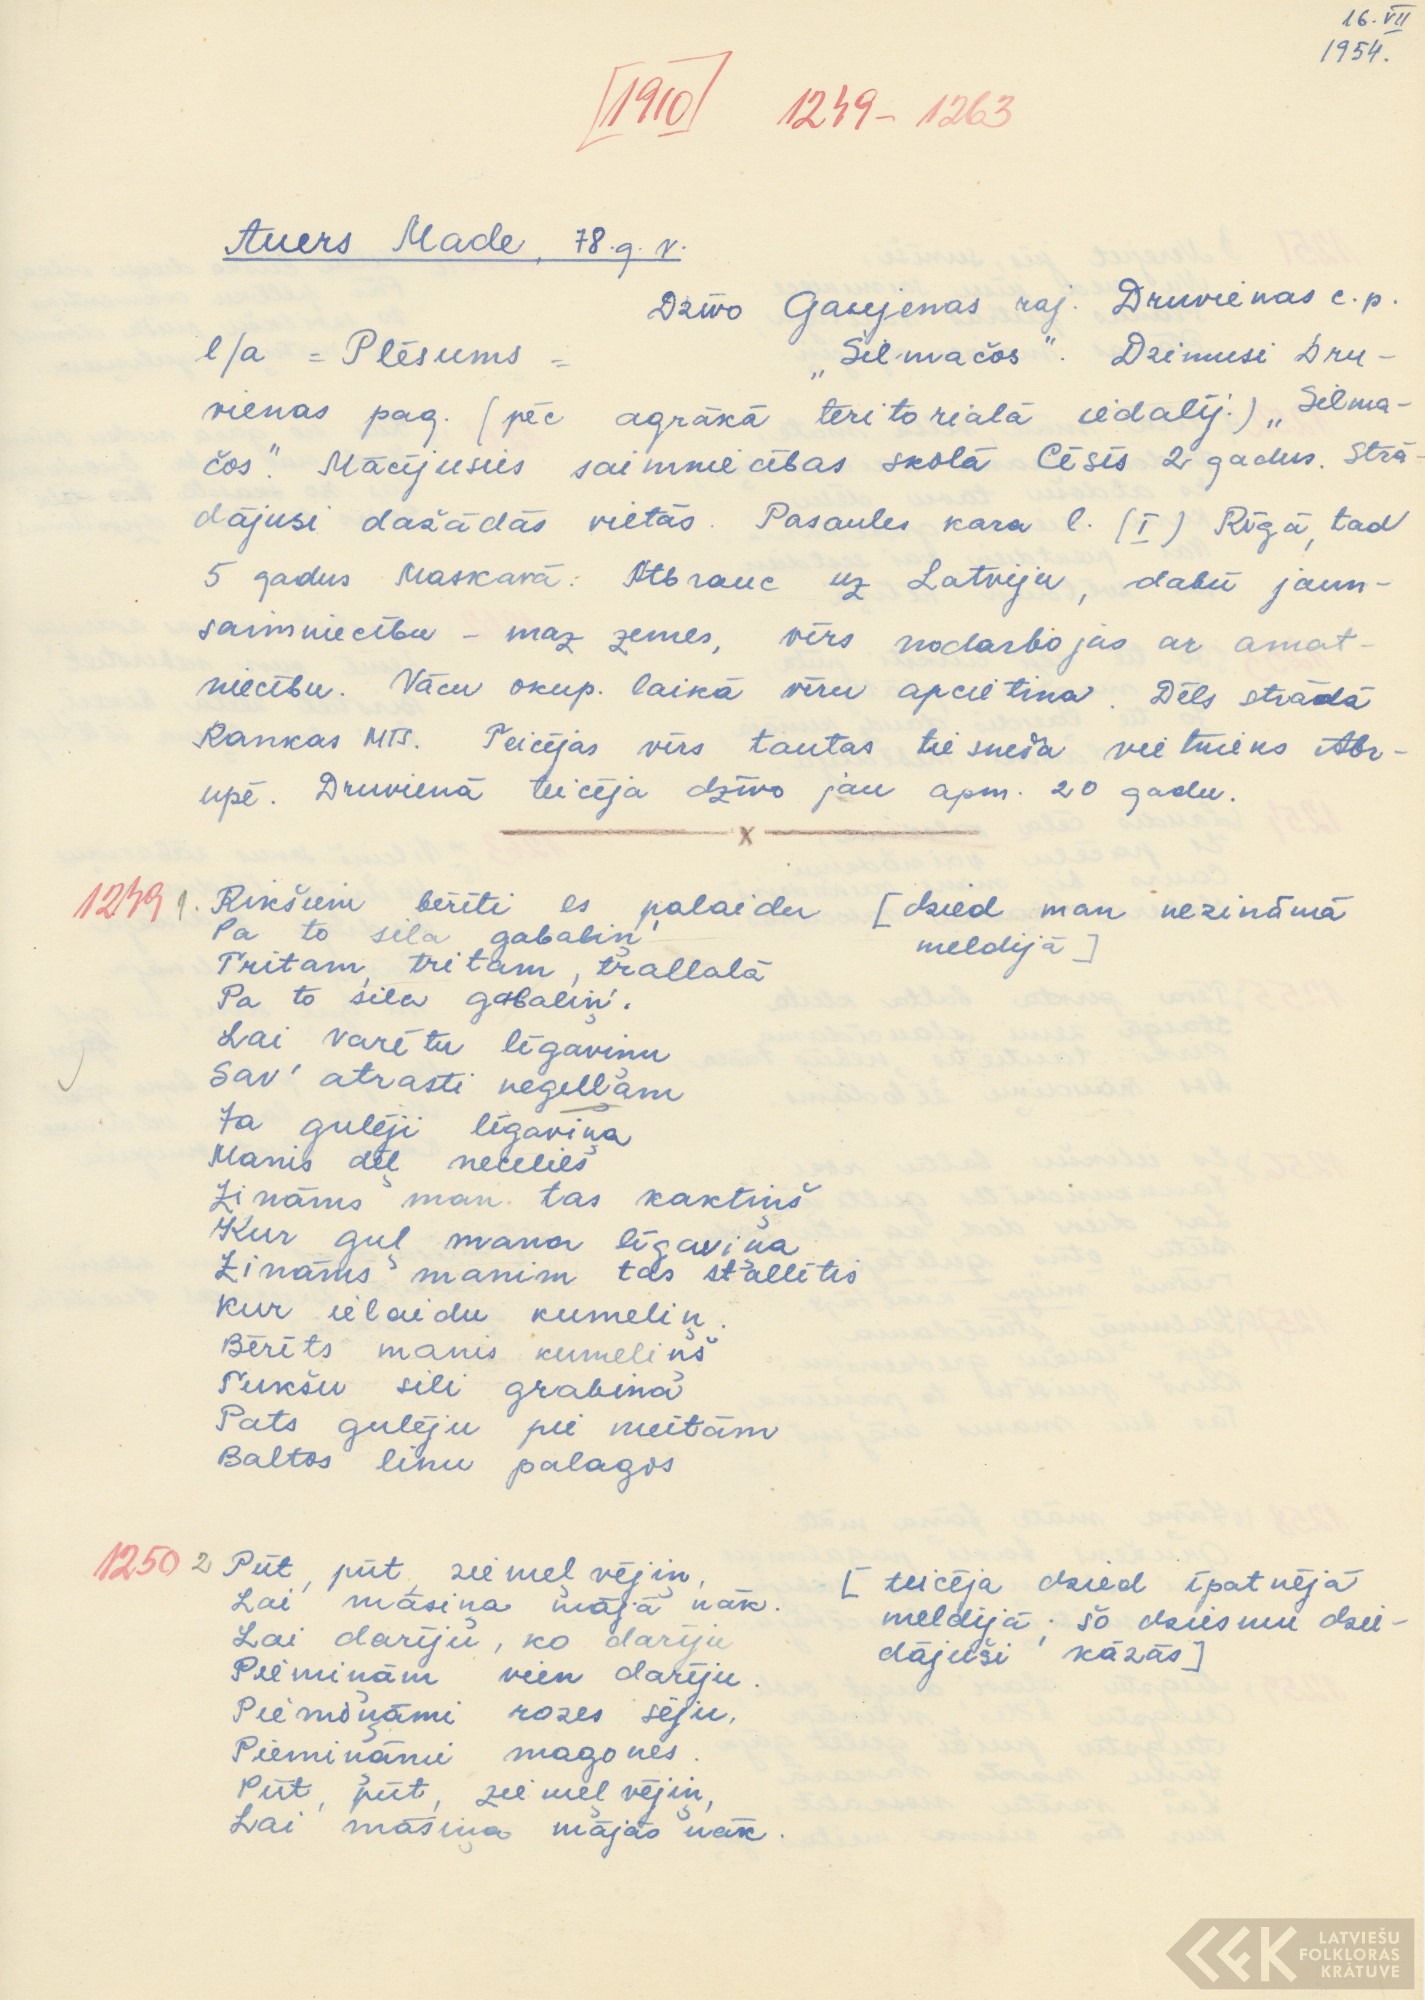 16. VII
1954.
[1910] 1249 - 1263
Auers Made, 78. g. v.
Dzīvo Gaujenas raj. Druvienas c. p.
l/a = Plēsums = „Silmačos". Dzimusi Dru-
vienas pag. (pēc agrākā teritoriālā iedalīj.) „Silma-
čos." Mācījusies saimniecības skolā Cēsīs 2 gadus. Strā-
dājusi dažādās vietās. Pasaules kara l. (I) Rīgā, tad
5 gadus Maskavā. Atbrauc uz Latviju, dabū jaun-
saimniecību - maz zemes, vīrs nodarbojas ar amat-
niecību. Vācu okup. laikā vīru apcietina. Dēls strādā
Rankas MTS. Teicējas vīrs tautas tiesneša vietnieks Abr-
upē. Druvienā teicēja dzīvo jau apm. 20 gadu.
x
1249 1. Rikšiem bērīti es palaidu [dzied man nezināmā
Pa to sila gabaliņ' meldijā]
Tritam, tritam, trallalā
Pa to sila gabaliņ'.
Lai varētu līgaviņu
Sav' atrasti neguļļam
Ja gulēji līgaviņa
Manis dēļ necelies
Zināms man tas kaktiņš
Kur guļ mana līgaviņa
Zināms manim tas stallītis
Kur ielaidu kumeliņ.
Bērīts manis kumeliņš
Tukšu sili grabina
Pats gulēju pie meitām
Baltos linu palagos
1250 2 Pūt, pūt, ziemeļvējiņ, [teicēja dzied īpatnējā
Lai māsiņa mājā nāk. meldijā, šo dziesmu dzie-
Lai darīju, ko darīju dājuši kāzās]
Piemiņām vien darīju.
Piemiņāmi rozes sēju,
Piemiņāmi magones.
Pūt, pūt, ziemeļvējiņ,
Lai māsiņa mājās nāk.
LATVIEŠU
FOLKLORAS
KRĀTUVE